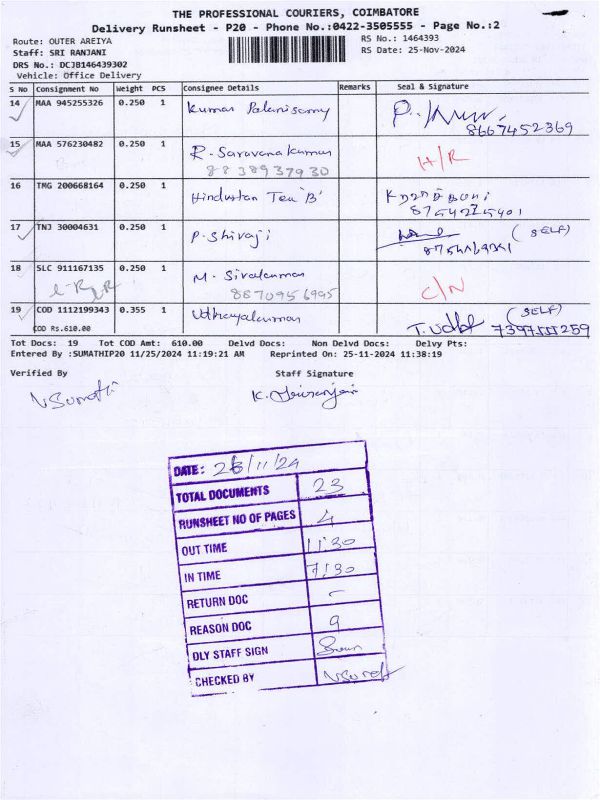 THE PROFESSIONAL COURIERS, COIMBATORE
Delivery Runsheet - P20 - Phone No.:0422-3505555 - Page No.:2
Route: OUTER AREIYA
RS No.: 1464393
Staff: SRI RANJANI
RS Date: 25-Nov-2024
DRS No.: DCJB146439302
Vehicle: Office Delivery
S No Consignment No Weight PCS Consignee Details Remarks Seal & Signature
14 MAA 945255326 0.250 1 Kumar Palanisamy
8667452369
15 MAA 576230482 0.250 1 R. Saravanakumar H/R
8838937930
16 TMG 200668164 0.250 1 Hindustan Tea 'B'
17 TNJ 30004631 0.250 1 P. Shivaji (SELF)
18 SLC 911167135 0.250 1 M. Sivakumar C/N
8870956995
19 COD 1112199343 0.355 1 Udhayakumar (SELF)
COD Rs.610.00 T. Udhay
Tot Docs: 19 Tot COD Amt: 610.00 Delvd Docs: Non Delvd Docs: Delvy Pts:
Entered By :SUMATHIP20 11/25/2024 11:19:21 AM Reprinted On: 25-11-2024 11:38:19
Verified By Staff Signature
DATE: /11/24
TOTAL DOCUMENTS 23
RUNSHEET NO OF PAGES 4
OUT TIME 11:30
IN TIME 7:30
RETURN DOC -
REASON DOC 9
DLY STAFF SIGN
CHECKED BY